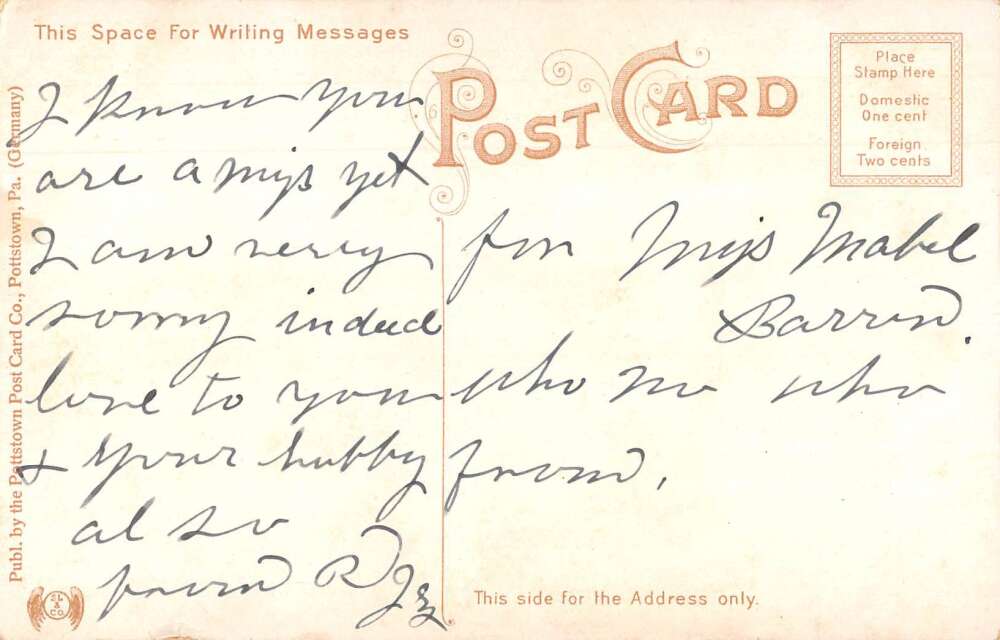 This Space For Writing Messages
POST CARD
Place
Stamp Here
Domestic
One cent
Foreign
Two cents
Publ. by the Pottstown Post Card Co., Pottstown, Pa. (Germany)
I know you
are a miss yet
I am verry
sorry indeed
love to you
& your hubby
also
from R
for Miss Mabel
Barren.
who no who
from.
SL
&
CO
This side for the Address only.